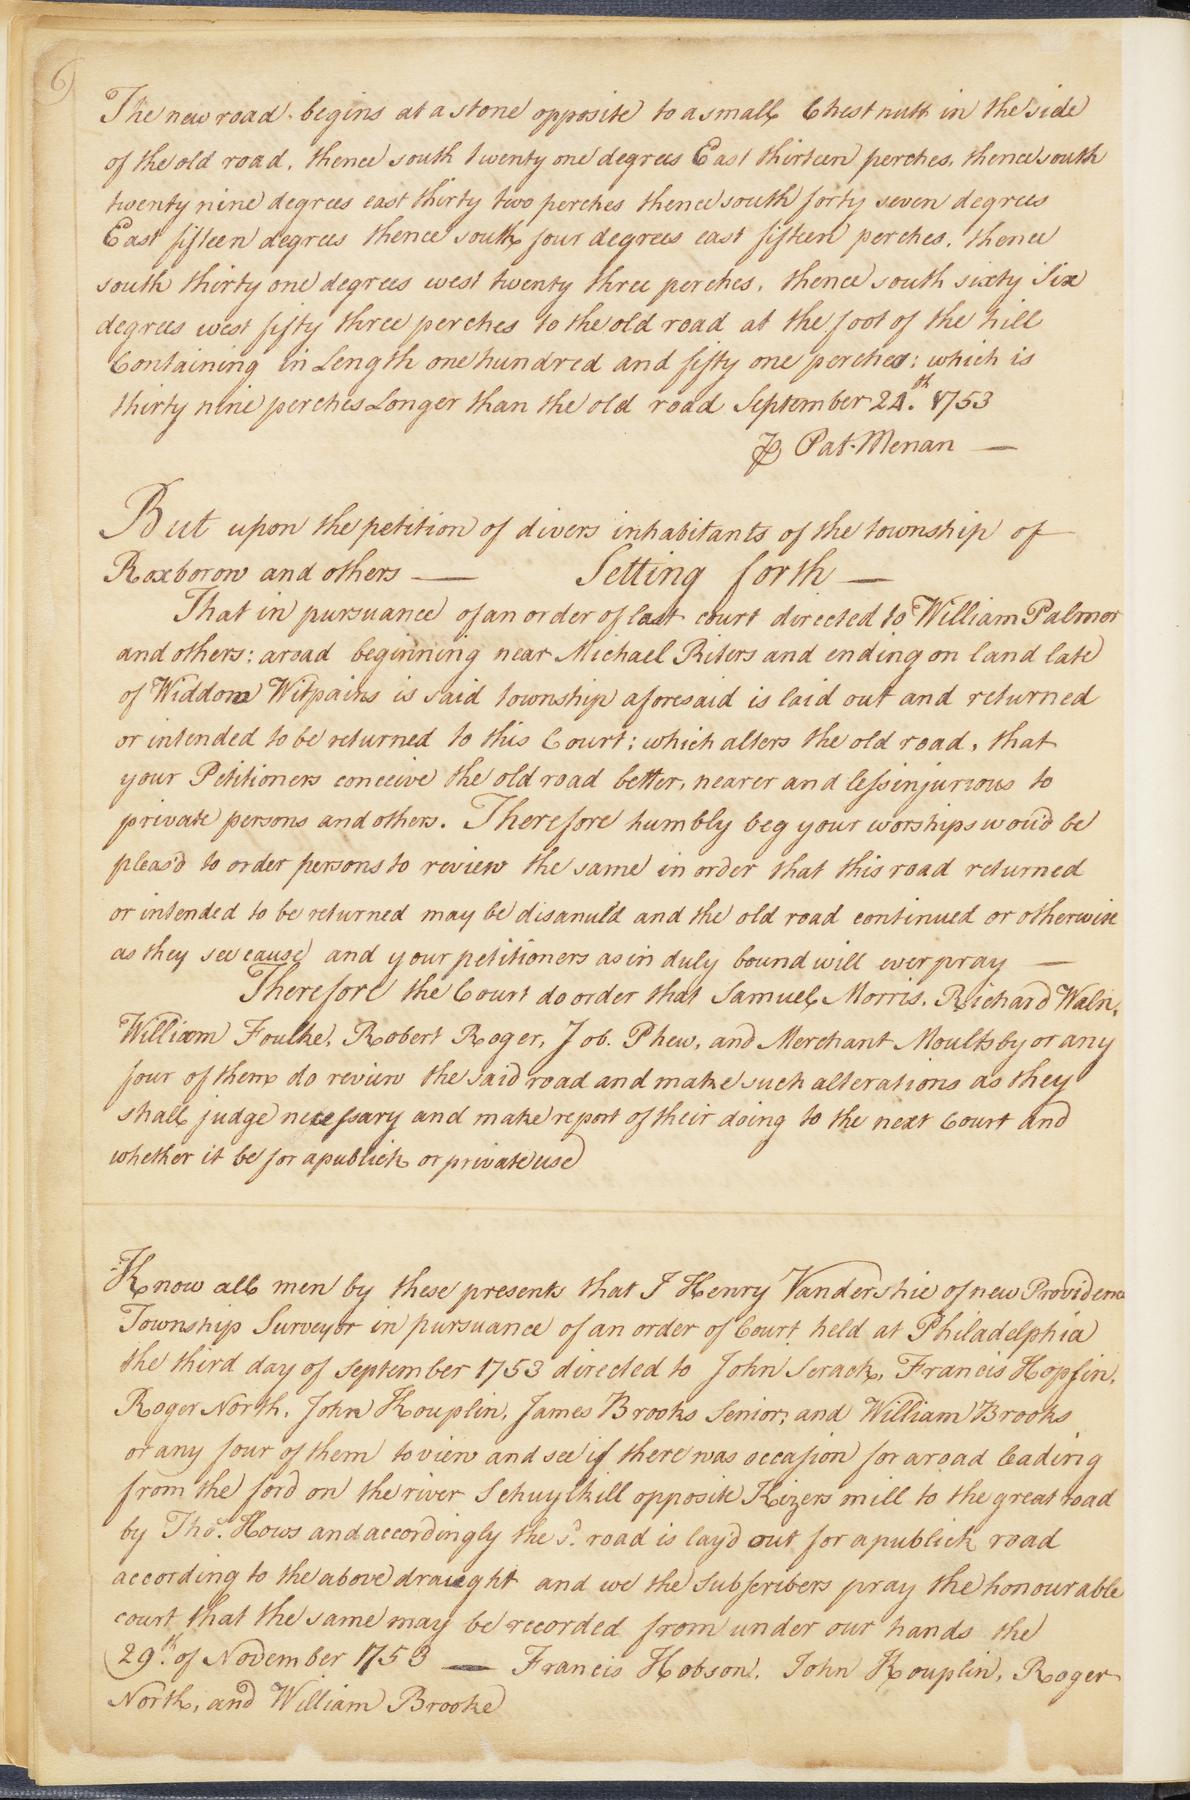 6
The new road begins at a stone opposite to a small Chestnutt in the side
of the old road, thence south twenty one degrees East thirteen perches, thence south
twenty nine degrees east thirty two perches thence south forty seven degrees
East fifteen degrees thence south four degrees east fifteen perches, thence
south thirty one degrees west twenty three perches, thence south sixty six
degrees west fifty three perches to the old road at the foot of the hill
Containing in Length one hundred and fifty one perches: which is
thirty nine perches Longer than the old road September 24th. 1753
Pat. Menan —
But upon the petition of divers inhabitants of the township of
Roxborow and others — Setting forth —
That in pursuance of an order of last court directed to William Palmor
and others: a road beginning near Michael Riters and ending on land late
of Widdow Witpains is said township aforesaid is laid out and returned
or intended to be returned to this Court; which alters the old road, that
your Petitioners conceive the old road better, nearer and less injurious to
private persons and others. Therefore humbly beg your worships wou'd be
pleas'd to order persons to review the same in order that this road returned
or intended to be returned may be disanuld and the old road continued or otherwise
as they see cause and your petitioners as in duly bound will ever pray —
Therefore the Court do order that Samuel Morris, Richard Waln,
William Foulke, Robert Roger, Job. Phew, and Merchant Moultsby or any
four of them do review the said road and make such alterations as they
shall judge necessary and make report of their doing to the next Court and
whether it be for a publick or private use
Know all men by these presents that I Henry Vanderslie of new Providence
Township Surveyor in pursuance of an order of Court held at Philadelphia
the third day of september 1753 directed to John Scrack, Francis Hopfin,
Roger North, John Kouplin, James Brooks Senior, and William Brooks
or any four of them to view and see if there was occasion for a road leading
from the ford on the river Schuylkill opposite Kizers mill to the great road
by Thos. Hows and accordingly the sd. road is lay'd out for a publick road
according to the above draught and we the Subscribers pray the honourable
court that the same may be recorded from under our hands the
29th. of November 1753 — Francis Hobson, John Kouplin, Roger
North, and William Brooke